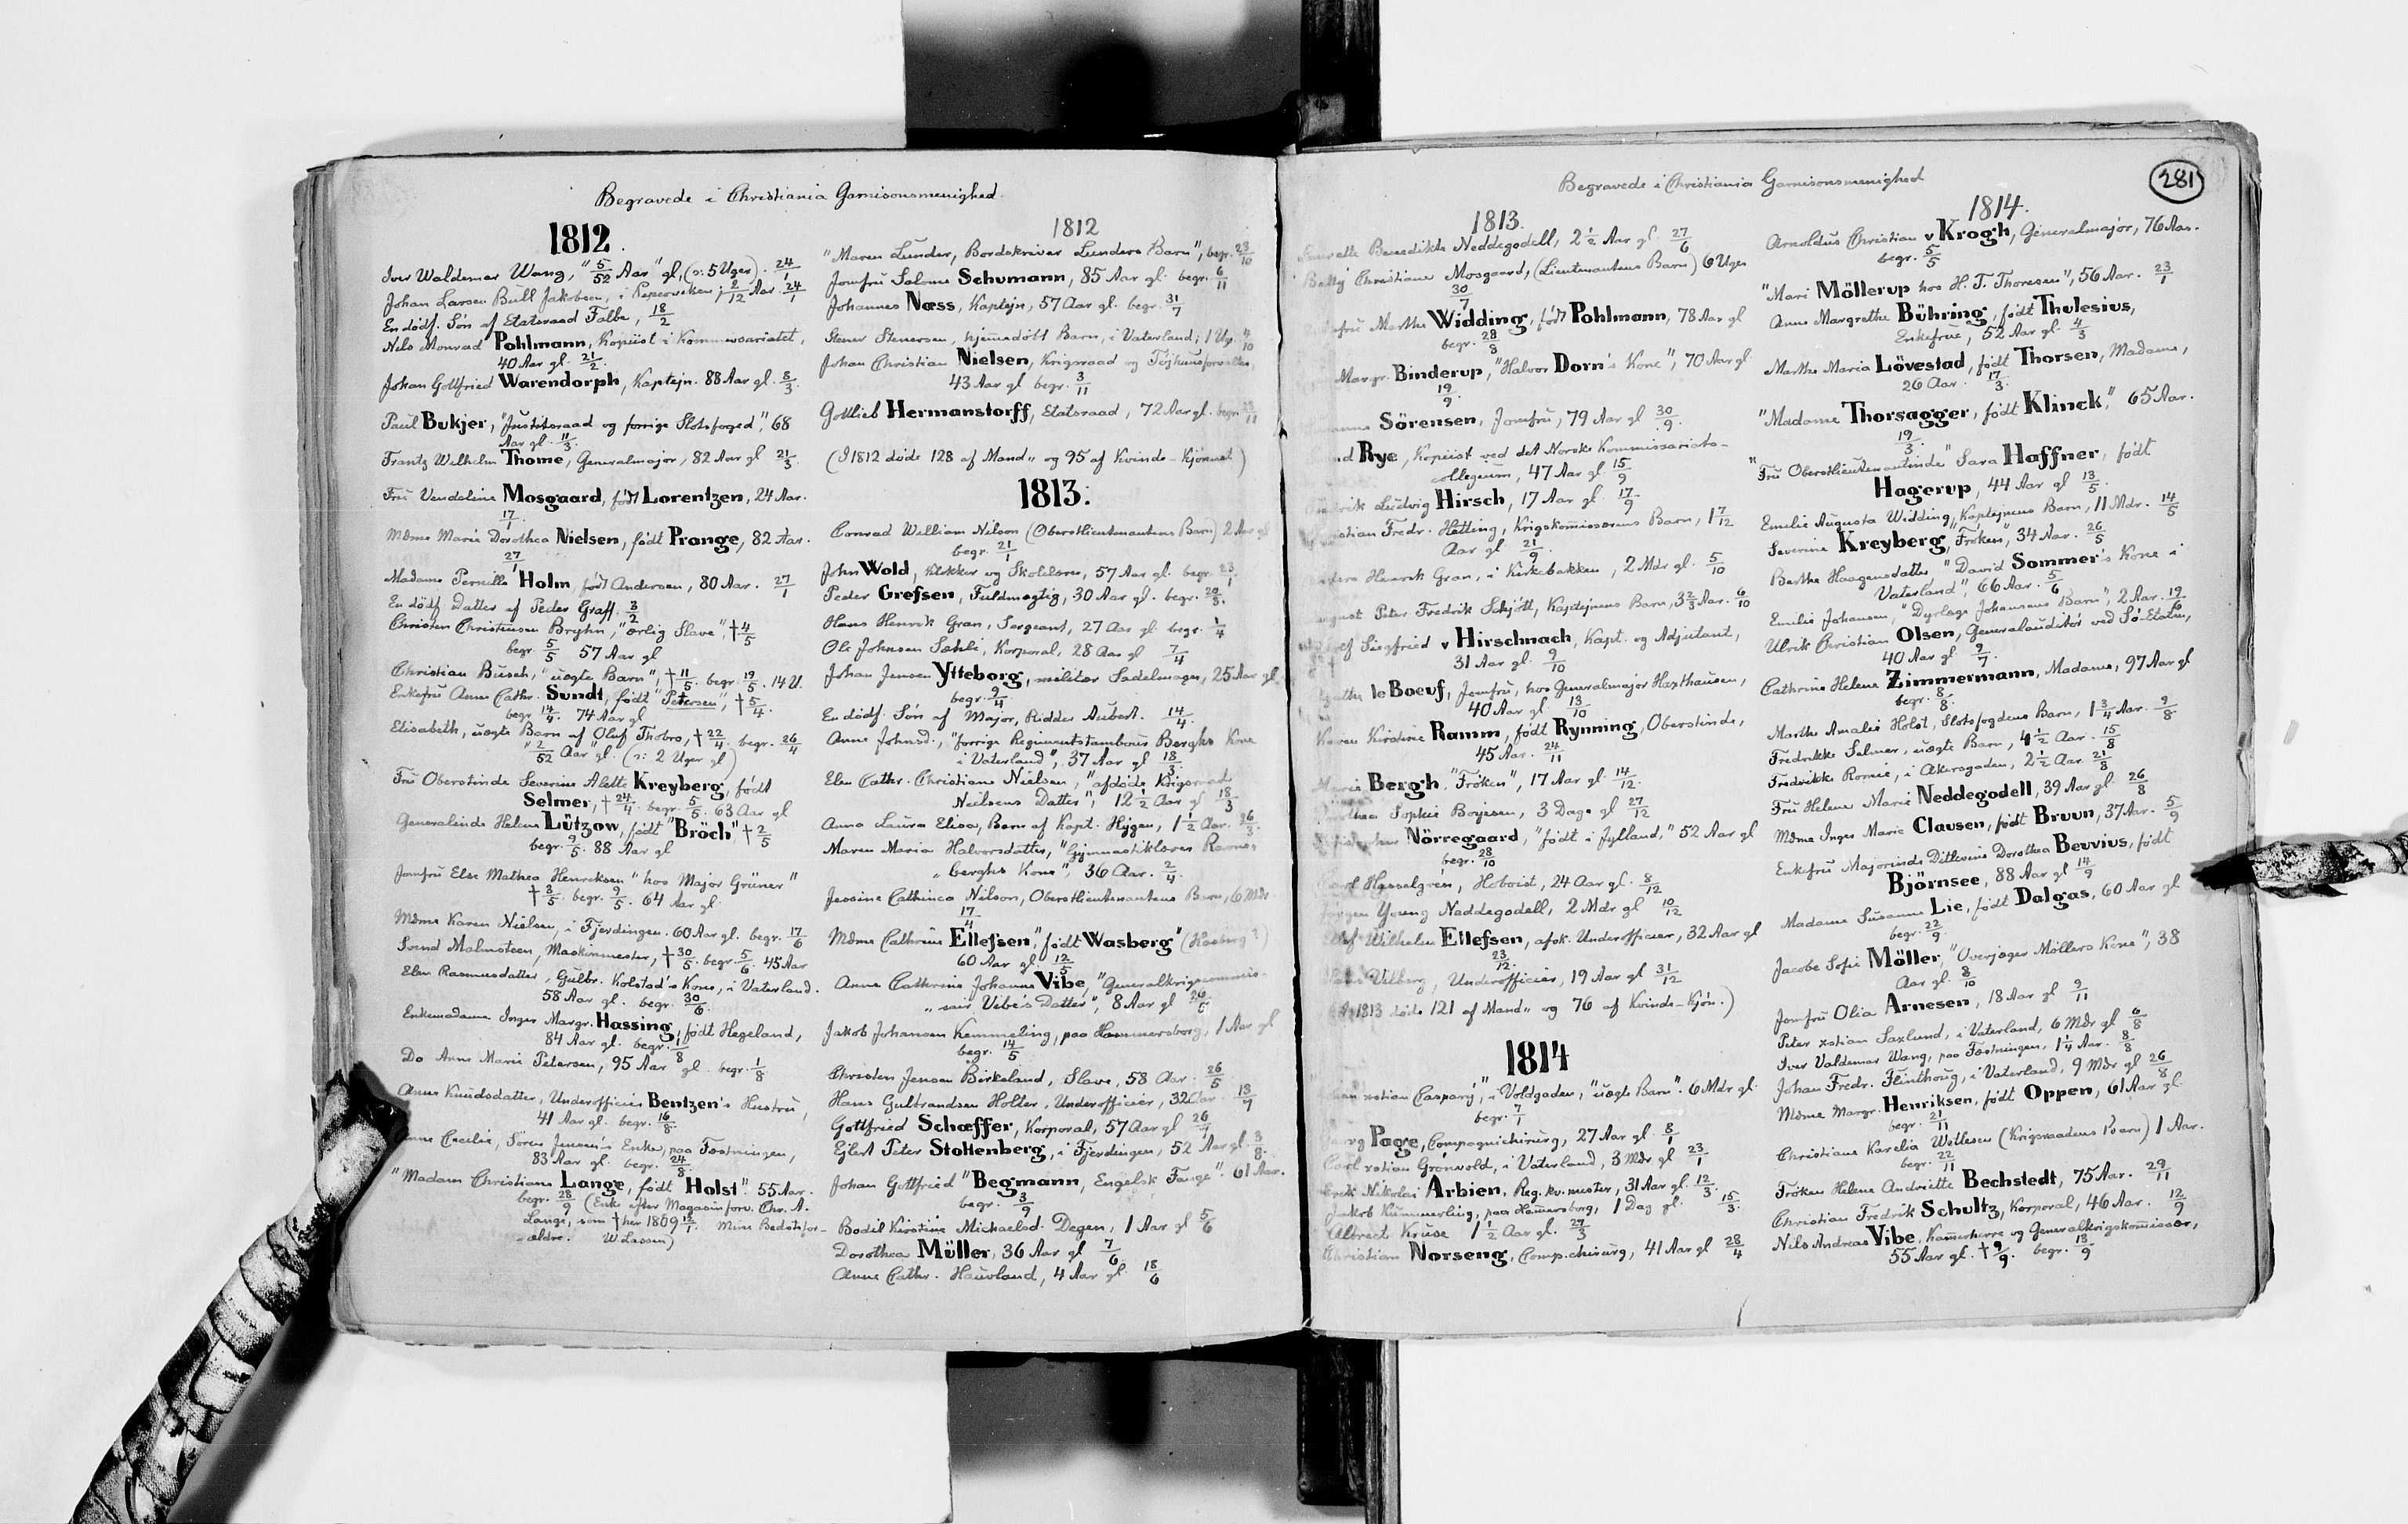 Begravede i Christiania Garnisonsmenighed.
1812.
Iver Waldemar Wang, "5/52 Aar" gl, (ɔ: 5 Uger). 24/1
Johan Larsen Bull Jakobsen, i Pipervviken; 2/12 Aar. 24/1
En dödf. Sön af Etatsraad Falbe, 18/2
Nils Monrad Pohlmann, Kopiist i Kommissariatet,
40 Aar gl. 21/2.
Johan Gottfried Warendorph, Kaptejn. 88 Aar gl. 8/3.
Paul Bukjer, "Justitsraad og forrige Slotsfoged", 68
Aar gl. 11/3.
Frantz Wilhelm Thome, Generalmajor, 82 Aar gl 21/3.
Fru Vendeline Mosgaard, født Lorentzen, 24 Aar.
17/1.
Mdme Marie Dorothea Nielsen, født Prange, 82 Aar.
27/1
Madame Pernille Holm, født Andersen, 80 Aar. 27/1
En dödf. Datter af Peder Graff. 3/2
Christen Christensen Bryhn, "ærlig Slave", † 4/5
begr. 5/5 57 Aar gl
Christian Busch, "uægte Barn", † 11/5. begr. 19/5. 14 U.
Enkefru Anne Cathr. Sundt, født "Petersen", † 5/4.
begr. 14/4. 74 Aar gl
Elisabeth, uægte Barn af Oluf Thobro, † 22/4. begr. 26/4
"2/52 Aar" gl. (ɔ: 2 Uger gl)
Fru Oberstinde Severine Alette Kreyberg, født
Selmer, † 24/4. begr. 5/5. 63 Aar gl
Generalinde Helene Lützow, født "Bröch", † 2/5
begr. 9/5. 88 Aar gl
Jomfru Else Mathea Henriksen "hos Major Grüner"
† 3/5. begr. 9/5. 64 Aar gl.
Mdme Karen Nielsen, i Fjerdingen. 60 Aar gl. begr. 17/6
Svend Malmsteen, Maskinmester, † 30/5. begr. 5/6. 45 Aar
Elen Rasmusdatter, Gulbr. Kolstad's Kone, i Vaterland.
58 Aar gl. begr. 30/6.
Enkemadame Inger Margr. Hassing, født Hegeland,
84 Aar gl. begr. 1/8
Do Anne Marie Petersen, 95 Aar gl. begr. 1/8
Anne Knudsdatter, Underofficier Bentzen's Hustru,
41 Aar gl. begr. 16/8.
Anne Cecilie, Sören Jensen's Enke, paa Fæstningen,
83 Aar gl. begr. 24/8.
"Madam Christiane Lange, født Holst". 55 Aar.
begr. 28/9 (Enke efter Magasinforv. Chr. A.
Lange, som † her 1809 12/1. Mine Bedstefor-
-ældre. W Lassen)
1812
"Maren Lunder, Bordskriver Lunders Barn", begr. 23/10
Jomfru Salome Schumann, 85 Aar gl. begr. 6/11
Johannes Næss, Kaptejn, 57 Aar gl. begr. 31/7
Stener Stenersen, hjemmedöbt Barn, i Vaterland; 1 Ug. 4/10
Johan Christian Nielsen, Krigsraad og Töjhusforvalter,
43 Aar gl begr. 3/11
Gottlieb Hermanstorff, Etatsraad, 72 Aar gl. begr.
(I 1812 döde 128 af Mand- og 95 af Kvinde-Kjönnet)
1813.
Conrad William Nilson (Oberstlieutenantens Barn) 2 Aar gl
begr. 21/1
John Wold, Klokker og Skolelærer, 57 Aar gl. begr. 23/1.
Peder Grefsen, Fuldmægtig, 30 Aar gl. begr.
Hans Henrik Gran, Sergeant, 27 Aar gl. begr. 1/4
Ole Johnsen Sæhli, Korporal, 28 Aar gl 7/4
Johan Jensen Ytteborg, militær Sadelmager, 25 Aar gl.
begr. 9/4
En dödf. Sön af Major, Ridder Aubert. 14/4.
Anne Johnsd., "forrige Regimentstambour Berghs Kone
i Vaterland", 37 Aar gl 18/3.
Elen Cathr. Christiane Nielsen, "afdöde Krigsraad
Neilsens Datter", 12 1/2 Aar gl 18/3
Anna Laura Elisa, Barn af Kapt. Hejgen, 1 1/2 Aar. 26/3
Maren Maria Halvorsdatter, "Gymnastiklærer Ravns-
" berghs Kone", 36 Aar. 2/4.
Jessine Cathinca Nilson, Oberstlieutenantens Barn, 6 Mdr.
17/4
Mdme Cathrine Ellefsen", født Wasberg" (Hasberg?)
60 Aar gl. 12/5
Anne Cathrine Johanne Vibe, "Generalkrigscommis-
" sair Vibe's Datter", 8 Aar gl
Jakob Johansen Kemmeling, paa Hammersborg, 1 Aar gl
begr. 14/5
Christen Jensen Birkeland, Slave, 58 Aar. 26/5
Hans Gulbrandsen Holter, Underofficier, 32 Aar.
Gottfried Schæffer, Korporal, 57 Aar gl
Ejlert Peter Stoltenberg, i Fjerdingen, 52 Aar gl. 3/8.
Johan Gottfried "Begmann, Engelsk Fange". 61 Aar.
begr. 3/9
Bodil Kirstine Michaelsd. Degen, 1 Aar gl 5/6
Dorothea Müller, 36 Aar gl 7/6.
Anne Cathr. Hauvland, 4 Aar gl. 18/6
281
Begravede i Christiania Garnisonsmenighed
1813.
Benedikte Neddegodell, 2 1/2 Aar gl. 27/6
Betty Christiane Mosgaard, (Lieutenantens Barn) 6 Uger
30/7
Marthe Widding, født Pohlmann, 78 Aar gl
begr. 28/8
Margr. Binderup, "Halvor Dorn's Kone", 70 Aar gl.
19/9.
Sörensen, Jomfru, 79 Aar gl 30/9.
Rye, Kopiist ved det Norske Kommissariats-
collegium, 47 Aar gl. 15/9
Ludvig Hirsch, 17 Aar gl. 17/9
Fredr. Hetting, Krigskommissærens Barn, 1 7/12
Aar gl 21/9.
Henrik Gran, i Kirkebakken, 2 Mdr gl. 5/10
August Peter Fredrik Schjött, Kaptejnens Barn, 3 2/3 Aar. 6/10
Siegfried v Hirschnach, Kapt. og Adjutant,
31 Aar gl. 9/10
le Boeuf, Jomfru, hos Generalmajor Haxthausen,
40 Aar gl 13/10
Karen Kirstine Ramm, født Rynning, Oberstinde,
45 Aar. 24/11
Marie Bergh, "Fröken", 17 Aar gl. 14/12.
Dorothea Sophie Boyesen, 3 Dage gl 27/12
Nörregaard, "født i Jylland," 52 Aar gl
begr. 28/10
Carl Hesselgren, Hoboist, 24 Aar gl. 8/12
Jörgen Young Naddegodell, 2 Mdr gl 10/12
Wilhelm Ellefsen, afsk. Underofficier, 32 Aar gl
23/12.
Vilberg, Underofficier, 19 Aar gl 31/12
1813 döde 121 af Mand- og 76 af Kvinde-Kjön.)
1814
xstian Caspary", i Voldgaden, "uægte Barn". 6 Mdr gl.
begr. 7/1
Georg Page, Compagnichirurg, 27 Aar gl. 8/1
Carl xstian Grönvold, i Vaterland, 3 Mdr gl 23/1
Erik Nikolai Arbien, Reg. kv. mester, 31 Aar gl. 12/3.
Jakob Kummerling, paa Hamersborg, 1 Dag gl. 15/3.
Albrect Kruse 1 1/2 Aar gl. 27/3
Christian Norseng, Comp. chirurg, 41 Aar gl 28/4
1814.
Arnoldus Christian v Krogh, Generalmajor, 76 Aar.
begr. 5/5
"Mari Möllerup hos H. T. Thoresen", 56 Aar. 23/1
Anne Margrethe Bühring, født Thulesius,
Enkefrue, 52 Aar gl. 4/3
Marthe Maria Lövestad, født Thorsen, Madame,
26 Aar. 17/3.
"Madame Thorsagger, født Klinck," 65 Aar.
19/3.
"Fru Oberstlieutenantinde" Sara Haffner, født
Hagerup, 44 Aar gl 13/5.
Emilie Augusta Widding, Kaptejnens Barn, 11 Mdr. 14/5
Severine Kreyberg, "Fröken", 34 Aar. 26/5
Berthe Haagensdatter "David Sommer's Kone i
Vaterland", 66 Aar. 5/6
Emilie Johansen, "Dyrlæge Johansens Barn", 2 Aar. 19/6
Ulrik Christian Olsen, Generalauditör ved Sö-Etaten,
40 Aar gl 9/7.
Cathrine Helene Zimmermann, Madame, 97 Aar gl
begr. 8/8.
Marthe Amalie Holst, Slotsfogdens Barn, 1 3/4 Aar. 9/8
Fredrikke Selmer, uægte Barn, 4 1/2 Aar. 15/8
Fredrikke Romie, i Akersgaden, 2 1/2 Aar. 21/8
Fru Helene Marie Neddegodell, 39 Aar gl. 26/8
Mdme Inger Marie Clausen, født Bruun, 37 Aar. 5/9
Enkefru Majorinde Ditlevine Dorothea Beuvius, født
Björnsee, 88 Aar gl 14/9
Madame Susanne Lie, født Dalgas, 60 Aar gl
begr. 22/9.
Jacobe Sofie Möller, "Overjæger Möllers Kone", 38
Aar gl. 8/10
Jomfru Olia Arnesen, 18 Aar gl 9/11
Peter xstian Saxlund, i Vaterland, 6 Mdr gl 6/8
Iver Valdemar Wang, paa Fæstningen, 1 1/4 Aar. 8/8
Johan Fredr. Flinthoug, i Vaterland, 9 Mdr gl 26/8
Mdme Margr. Henriksen, født Oppen, 61 Aar gl.
begr. 21/11
Christiane Karelia Willesen (Krigsraadens Barn) 1 Aar.
begr. 22/11
Fröken Helene Andriette Bechstedt, 75 Aar. 29/11
Christian Fredrik Schultz, Korporal, 46 Aar. 12/9
Nils Andreas Vibe, Kammerherre og Generalkrigskommissær,
55 Aar gl. † 9/9. begr. 13/9